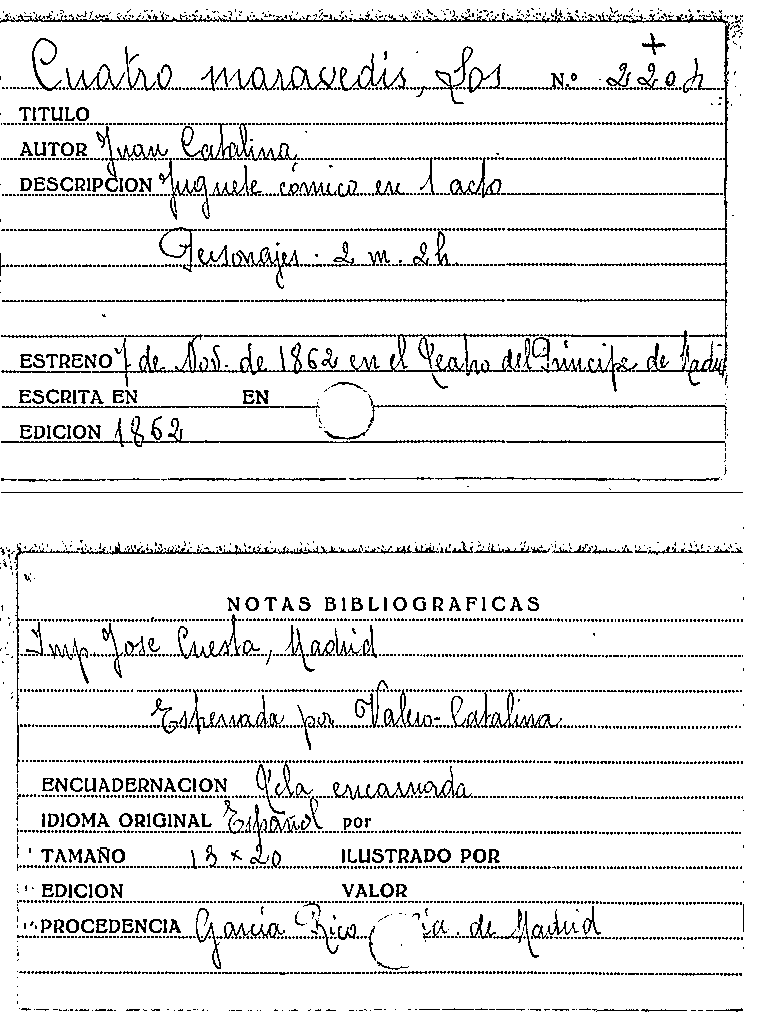 Cuatro maravedis, Los N.º 220h
TITULO
AUTOR Juan Catalina
DESCRIPCION Juguete cómico en 1 acto
Personajes. 2 m. 2h
ESTRENO 7 de Nov. de 1862 en el Teatro del Principe de
ESCRITA EN EN
EDICION 1862
NOTAS BIBLIOGRAFICAS
Imp. Jose Cuesta, Madrid
Estrenada por Valero-Catalina
ENCUADERNACION Tela encarnada
IDIOMA ORIGINAL Español por
TAMAÑO 13 x 20 ILUSTRADO POR
EDICION VALOR
PROCEDENCIA García Rico de Madrid